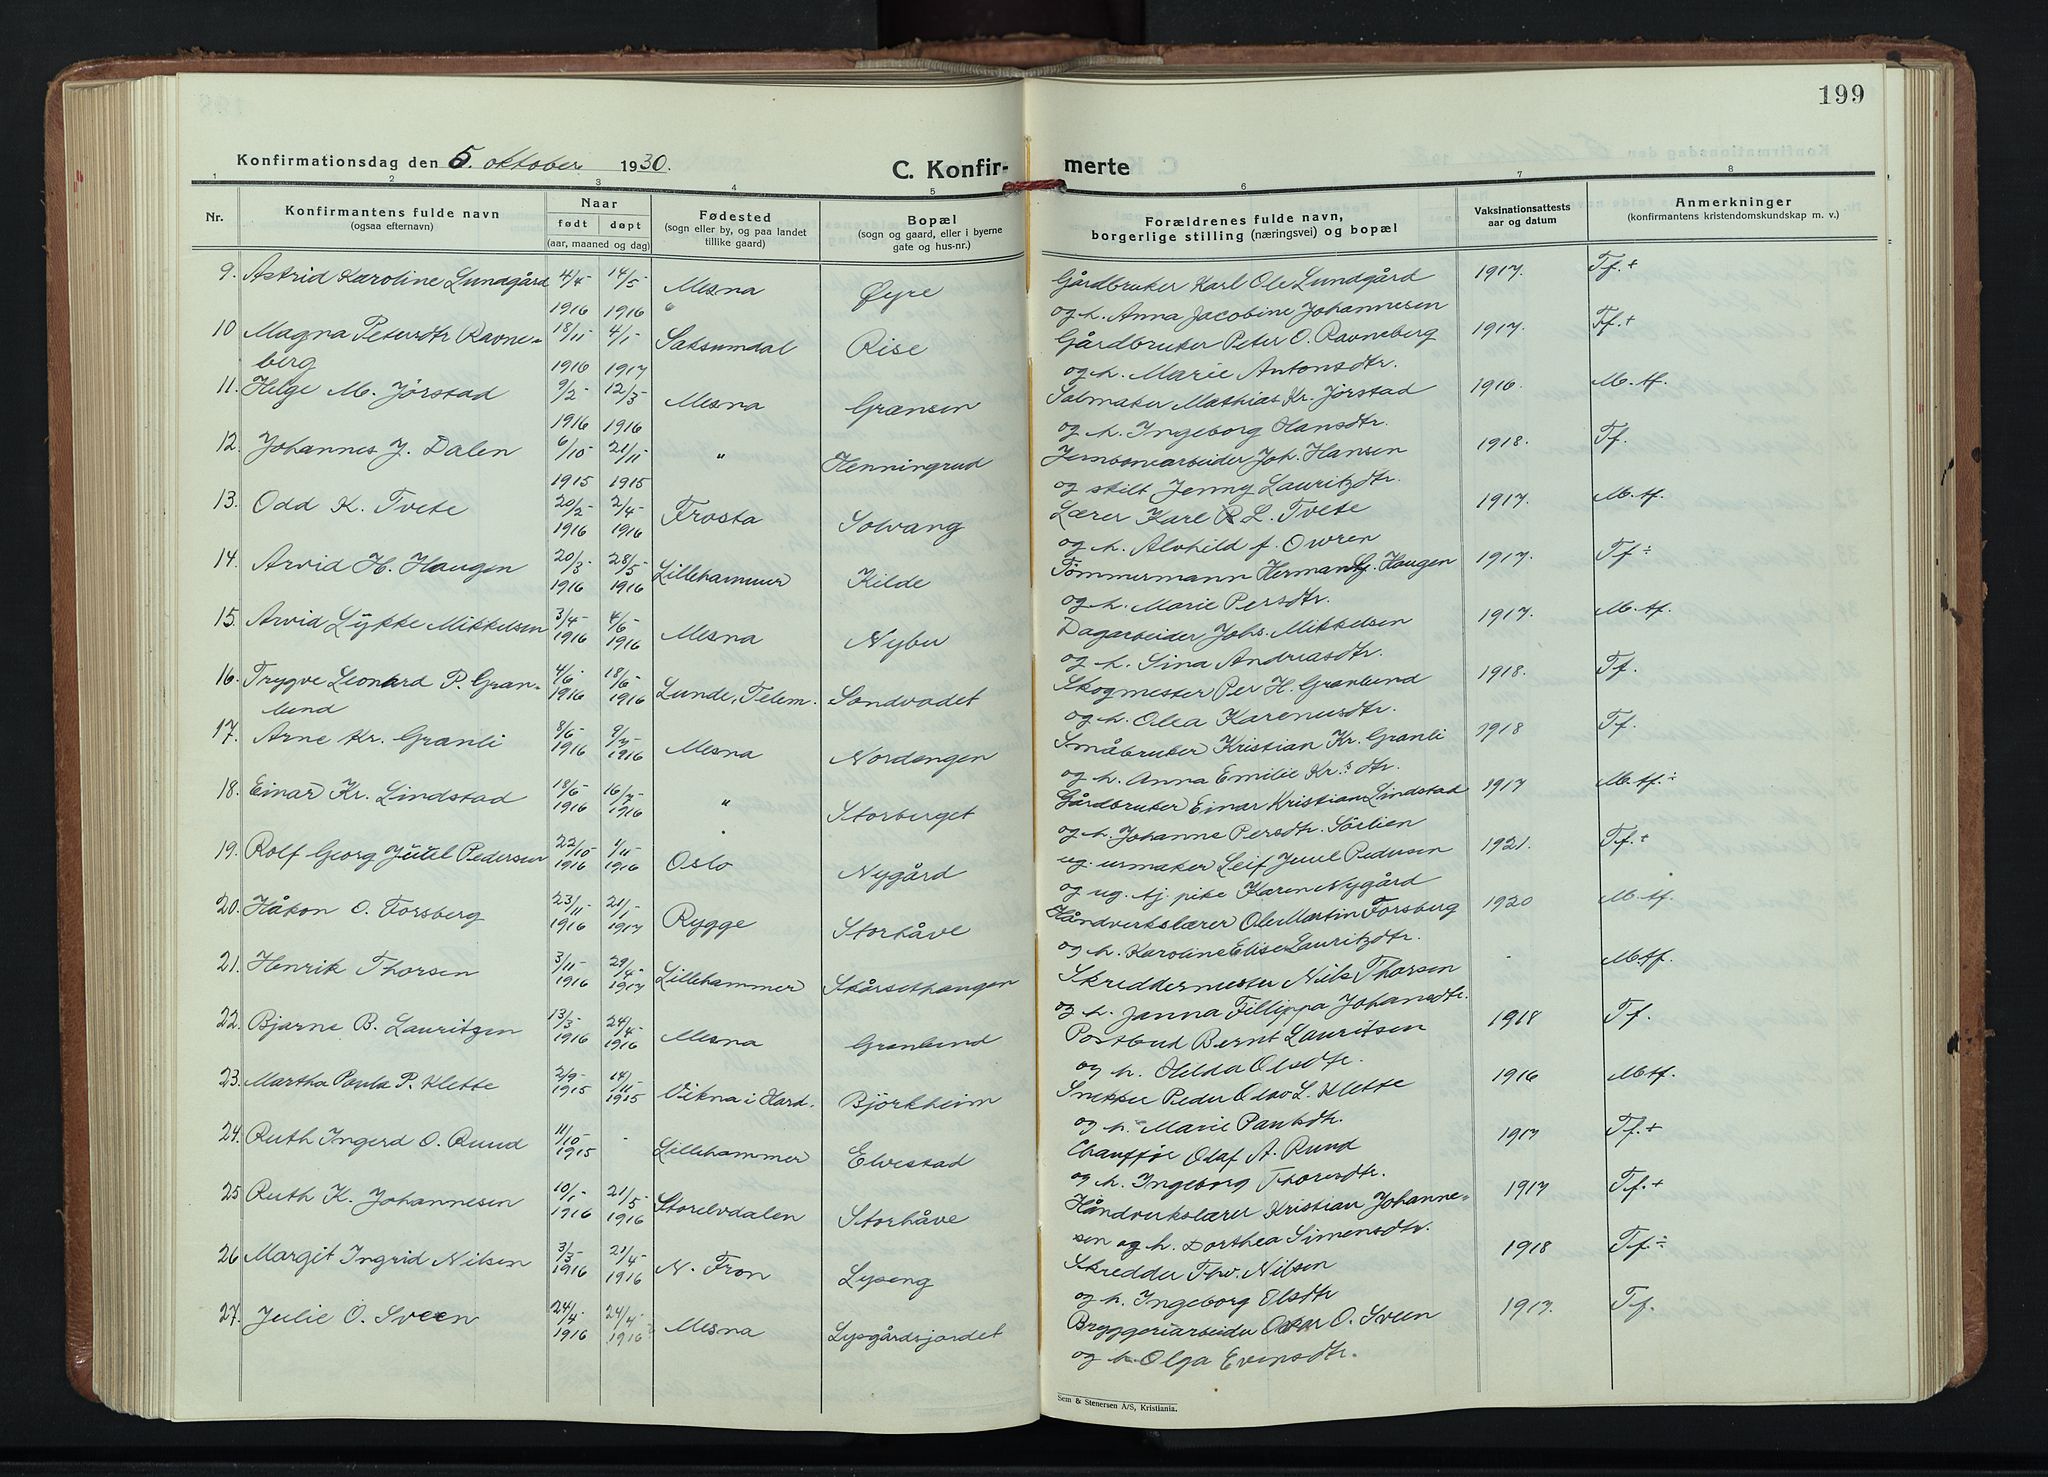 199
Konfirmationsdag den 5. oktober 1930.
C. Konfir-
merte
1 2 3 4 5 6 7 8
Nr.
Konfirmantens fulde navn
(ogsaa efternavn)
Naar
født
døpt
(aar, maaned og dag)
Fødested
(sogn eller by, og paa landet
tillike gaard)
Bopæl
(sogn og gaard, eller i byerne
gate og hus-nr.)
Forældrenes fulde navn,
borgerlige stilling (næringsvei) og bopæl
Vaksinationsattests
aar og datum
Anmerkninger
(konfirmantens kristendomskundskap m. v.)
9. Astrid Karoline Lundgård 4/4- 1916 14/5 1916 Mesna Øyre Gårdbruker Karl Ole Lundgård 1917. Tf.+
og h. Anna Jacobine Johannesen
10 Magna Petersdtr Ravne- 18/11- 1916 4/1- 1917 Saksumdal Rise Gårdbruker Peter O. Ravneberg 1917. Tf.+
berg
og h. Marie Antonsdtr.
11. Helge M. Jørstad 9/2- 1916 12/3- 1916 Mesna Gransen Salmaker Mathias Kr. Jørstad 1916. M.tf.
og h. Ingeborg Hansdtr.
12. Johannes J. Dalen 6/10- 1915 21/11- 1915 " Henningrud Jernbanearbeider Joh. Hansen 1918. Tf.
og skilt Jenny Lauritzdtr.
13. Odd K. Tvete 20/2- 1916 2/4- 1916 Frosta Solvang Lærer Karl L. Tvete 1917. M.tf.
og h. Alvhild f. Owren
14. Arvid H. Haugen 20/3- 1916 28/5- 1916 Lillehammer Kilde Tømmermann Herman G. Haugen 1917. Tf÷
og h. Marie Persdtr.
15. Arvid Lykke Mikkelsen 3/4- 1916 4/6- 1916 Mesna Nybu Dagarbeider Johs. Mikkelsen 1917. M.tf.
og h. Sina Andreasdtr.
16. Trygve Leonard P. Gran- 4/6- 1916 18/6- 1916 Lunde, Telem. Sandvadet Skogmester Per H. Granlund 1918. Tf.
lund
og h. Olea Karenusdtr.
17. Arne Kr. Granli 8/6- 1916 9/7- 1916 Mesna Nordengen Småbruker Kristian Kr. Granli 1918 Tf.
og h. Anna Emilie Kr.s dtr.
18. Einar Kr. Lindstad 18/6- 1916 16/7- 1916 " Storberget Gårdbruker Einar Kristian Lindstad 1917 M.tf÷
og h. Johanne Persdtr. Sølien
19. Rolf Georg Juul Pedersen 22/10- 1916 1/11- 1916 Oslo Nygård ug. urmaker Leif Juul Pedersen 1921. Tf.+
og ug. tj. pike Karen Nygård
20. Håkon O. Forsberg 23/11- 1916 21/1- 1917 Rygge Storhåve Håndverkslærer Ole Martin Forsberg 1920 M.tf.
og h. Karoline Elise Lauritzdtr.
21. Henrik Thorsen 3/11- 1916 29/4- 1917 Lillehammer Skårsethaugen Skreddermester Nils Thorsen - M.tf.
og h. Janna Fillippa Johansdtr.
22. Bjarne B. Lauritzen 13/3- 1916 24/4- 1916 Mesna Granlund Postbud Bernt Lauritsen 1918 Tf.
og h. Hilda Olsdtr.
23. Martha Paula P. Klette 2/9- 1915 14/11- 1915 Vikna i Hard. Bjørkheim Snekker Peder Olav L. Klette 1916 Mtf.
og h. Marie Paulsdtr.
24. Ruth Ingerd O. Ruud 11/10- 1915 - Lillehammer Elvestad Chauffør Olaf A. Ruud 1917 Tf.+
og h. Ingeborg Thoresdtr.
25 Ruth K. Johannesen 10/1- 1916 21/5- 1916 Storelvdalen Storhåve Håndverkslærer Kristian Johanne- 1917 Tf.+
sen og h. Dorthea Simensdtr.
26 Margit Ingrid Nilsen 3/3- 1916 21/4- 1916 N. Fron Lyseng Skredder Thv. Nilsen 1918 Tf.÷
og h. Ingeborg Elsdtr
27. Julie O. Sveen 24/4- 1916 24/4- 1916 Mesna Lysgårdsjordet Bryggeriarbeider Oskar O. Sveen 1917. Tf.
og h. Olga Evensdtr.
Sem & Stenersen A/S, Kristiania.